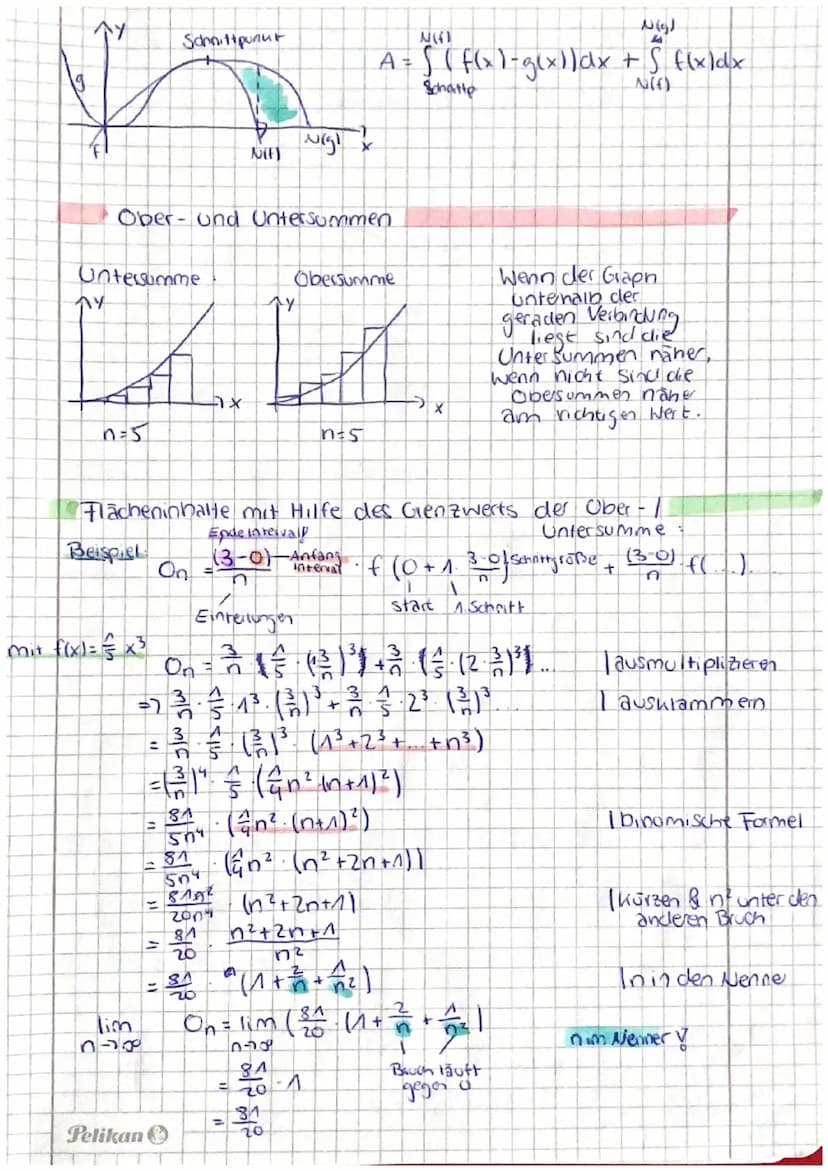 y
Schnittpunkt
g
f
N(f)
N(g)
x
A = ∫ (f(x)-g(x))dx + ∫ f(x)dx
N(f)
Schnittp
N(g)
N(f)
Ober- und Untersummen
Untersumme
y
x
n=5
Obersumme
y
x
n=5
Wenn der Graph
unterhalb der
geraden Verbindung
liegt sind die
Untersummen näher,
wenn nicht sind die
Obersummen näher
am richtigen Wert.
Flächeninhalte mit Hilfe des Grenzwerts der Ober-/
Untersumme:
Beispiel:
Ende Intervall
On = (3-0)/n · f (0 + 1 · (3-0)/n) + (3-0)/n · f(...)...
Anfang
Interval
Schrittgröße
Einteilungen
Start
1. Schritt
mit f(x) = 1/5 x³
On = 3/n (1/5 · (1 3/n)³) + 3/n · (1/5 · (2 · 3/n)³)... | ausmultiplizieren
=> 3/n · 1/5 · 1³ · (3/n)³ + 3/n · 1/5 · 2³ · (3/n)³... | ausklammern
= 3/n · 1/5 · (3/n)³ · (1³+2³+...+n³)
= (3/n)⁴ · 1/5 · (1/4 n² · (n+1)²)
= 81/5n⁴ · (1/4 n² · (n+1)²) | binomische Formel
= 81/5n⁴ · (1/4 n² · (n²+2n+1))
= 81n²/20n⁴ · (n²+2n+1) | kürzen & n² unter den
anderen Bruch
= 81/20 · n²+2n+1/n²
= 81/20 · (1 + 2/n + 1/n²) | n in den Nenne
lim n→∞ On = lim n→∞ (81/20 · (1 + 2/n + 1/n²)
n im Nenner!
Bruch läuft
gegen 0
= 81/20 · 1
= 81/20
Pelikan